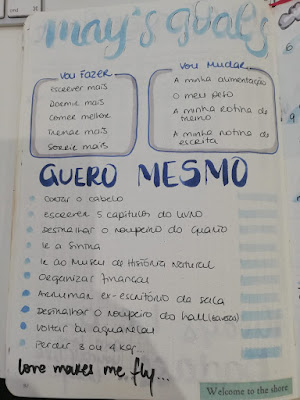 may's goals
VOU FAZER
Escrever mais
Dormir mais
Comer melhor
Treinar mais
Sorrir mais
VOU MUDAR
A minha alimentação
O meu peso
A minha rotina de treino
A minha rotina de escrita
QUERO MESMO
Cortar o cabelo
Escrever 5 capítulos do livro
Destralhar o roupeiro do quarto
Ir a Sintra
Ir ao Museu de História Natural
Organizar finanças
Arrumar ex-escritório da sala
Destralhar o roupeiro do hall
Voltar às aguarelas
Perder 3 ou 4 kg...
love makes me fly...
Welcome to the shore